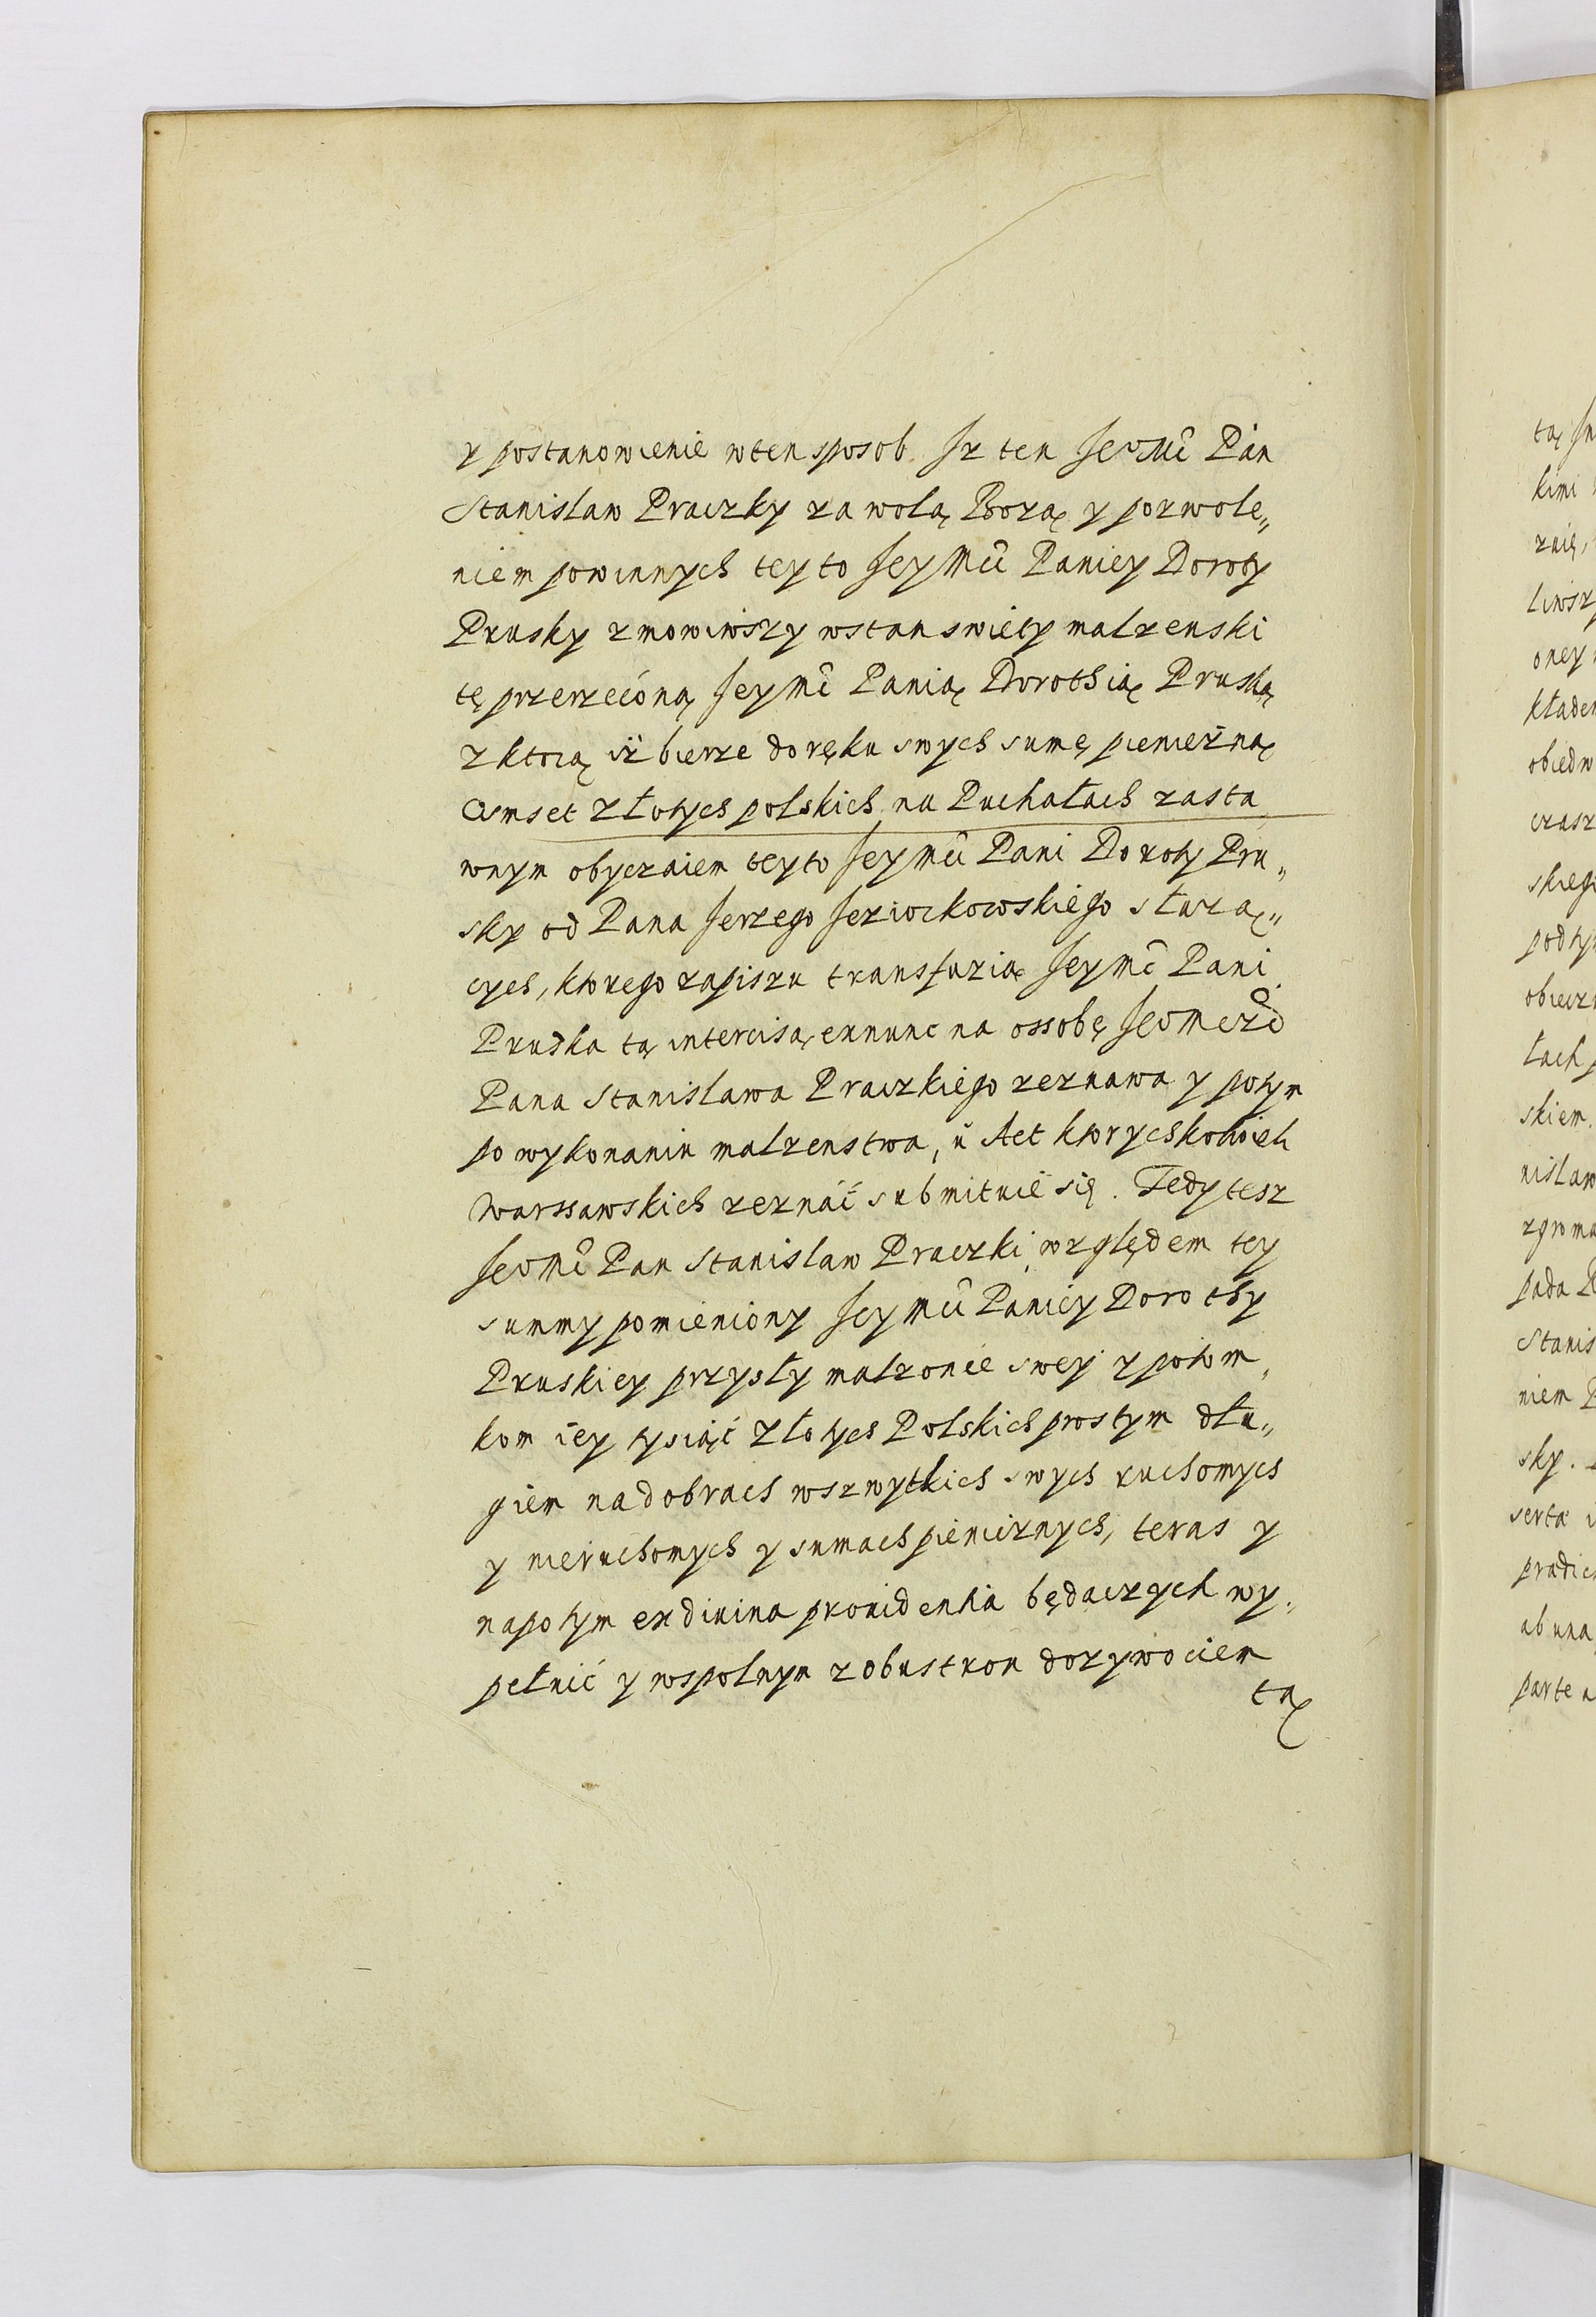 y postanowienie wten sposob. Jz ten JeoMc Pan
Stanislaw Praczky za wolą Bozą y pozwole„
niem powinnych tey to Jey Mci Paniey Doroty
Prusky zmowiwszy wstan swiety malzenski
tę przerzeconą Jey Mc Panią Dorothią Pruską
z ktorą iż bierze do ręku swych sumę pieniežną
Osmset złotych polskich na Puchałach zasta
wnym obyczaiem tey to Jey Mci Pani Doroty Pru„
sky od Pana Jerzego Jeziorkowskiego słuzą„
cych, ktorego zapiszu transfuzią Jey Mc Pani
Pruska tą intercisą exnunc na ossobę Jeomczo
Pana Stanislawa Praczkiego zeznawa y potym
po wykonaniu malzenstwa, u Act ktorychkolwiek
Warssawskich zeznać submituie się. Tedy tesz
JeoMc Pan Stanislaw Praczki względem tey
summy pomieniony Jey Mci Paniey Dorothy
Pruskiey przysły malzonce swey y potom„
kom iey tysiąc złotych Polskich prostym dłu„
giem na dobrach wszwytkich swych ruchomych
y nieruchomych y sumach pienieznych, teras y
napotym ex diuina prouidentia będaczych wy„
pełnić y wspolnym z obustron dozywociem
tą